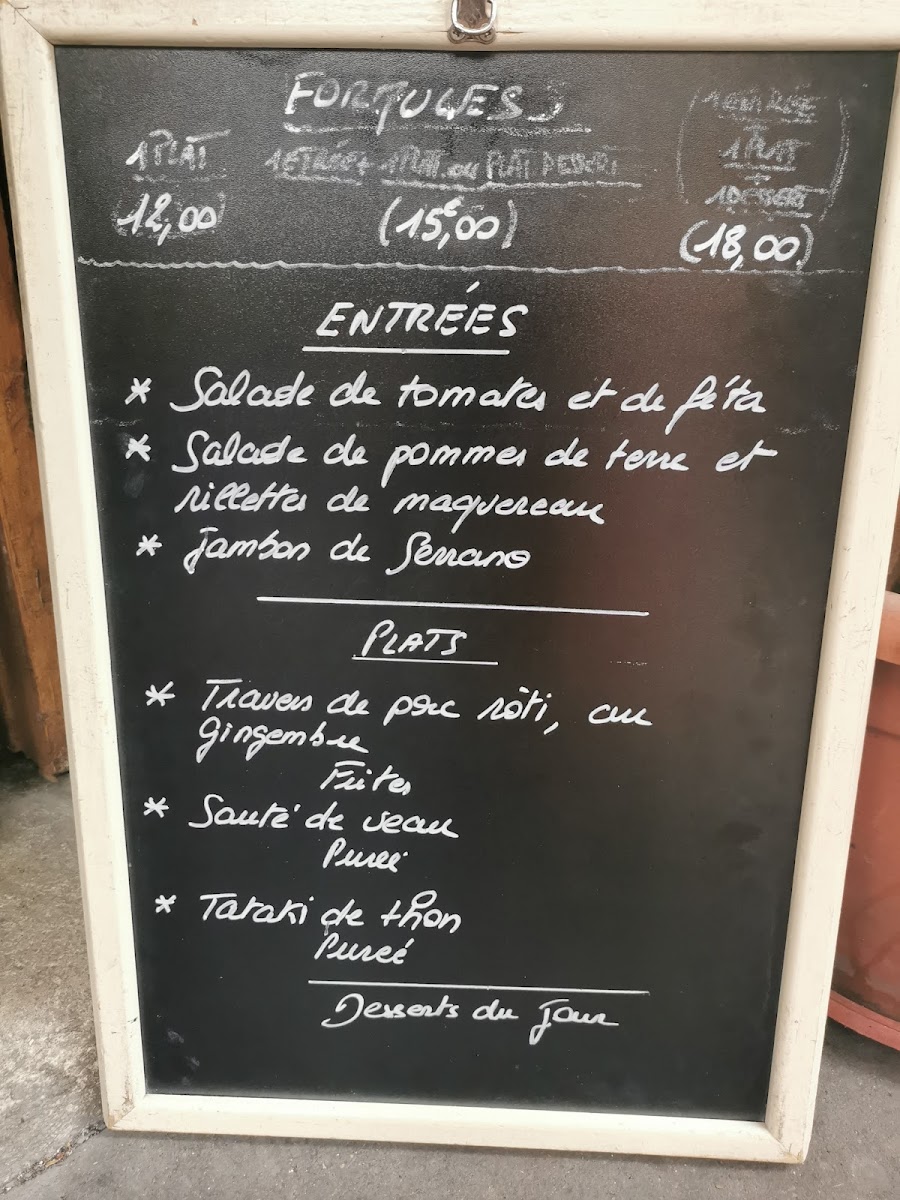 FORMULES
1 PLAT
(12,00)
1 ENTRÉE + 1 PLAT ou PLAT DESSERT
(15€,00)
1 ENTRÉE
1 PLAT
+
1 DESSERT
(18,00)
ENTRÉES
* Salade de tomates et de féta
* Salade de pommes de terre et
rillettes de maquereau
* Jambon de Serrano
PLATS
* Travers de porc rôti, au
Gingembre
Frites
* Sauté de veau
Purée
* Tataki de thon
Pureé
Desserts du jour